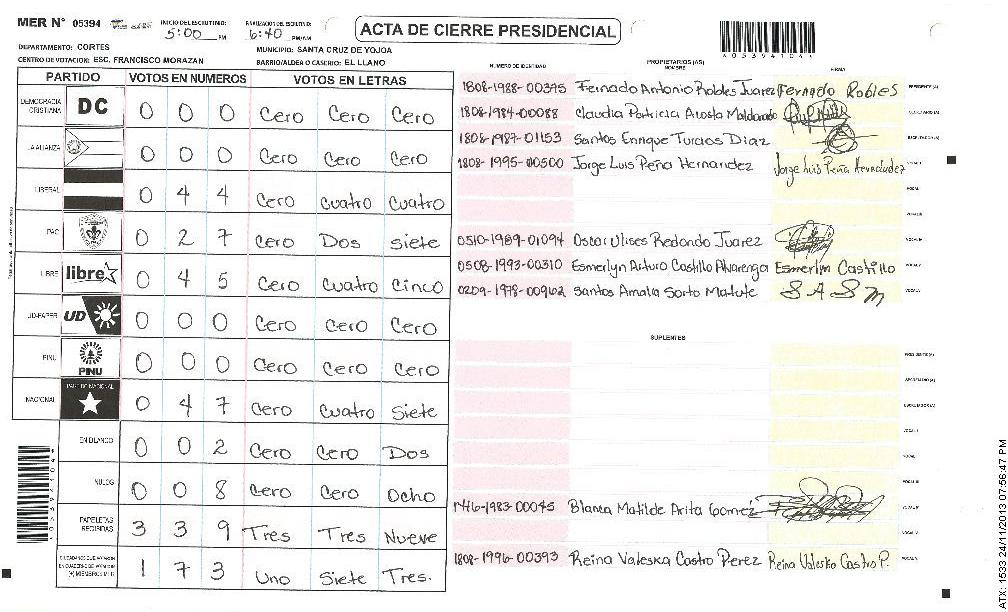 MER N° 05394
INICIO DE ESCRUTINIO: 5:00 PM
FINALIZACION DEL ESCRUTINIO: 6:40 PM/AM
ACTA DE CIERRE PRESIDENCIAL
A05394104A
DEPARTAMENTO: CORTES
MUNICIPIO: SANTA CRUZ DE YOJOA
CENTRO DE VOTACION: ESC. FRANCISCO MORAZAN
BARRIO/ALDEA O CASERIO: EL LLANO
PARTIDO VOTOS EN NUMEROS VOTOS EN LETRAS
DEMOCRACIA CRISTIANA DC 0 0 0 Cero Cero Cero
LA ALIANZA 0 0 0 Cero Cero Cero
LIBERAL 0 4 4 Cero Cuatro Cuatro
PAC 0 2 7 Cero Dos Siete
LIBRE libre 0 4 5 Cero Cuatro Cinco
UD-FAPER UD 0 0 0 Cero Cero Cero
PINU PINU 0 0 0 Cero Cero Cero
NACIONAL PARTIDO NACIONAL 0 4 7 Cero Cuatro Siete
EN BLANCO 0 0 2 Cero Cero Dos
NULOS 0 0 8 Cero Cero Ocho
PAPELETAS RECIBIDAS 3 3 9 Tres Tres Nueve
CIUDADANOS QUE VOTARON EN CUADERNO DE VOTACION (+) MIEMBROS MER 1 7 3 Uno Siete Tres.
NUMERO DE IDENTIDAD PROPIETARIOS (AS) NOMBRE FIRMA
1808-1988-00395 Fernado Antonio Robles Juarez Fernado Robles PRESIDENTE (A)
1808-1984-00088 Claudia Patricia Acosta Maldonado SECRETARIO (A)
1808-1987-01153 Santos Enrique Turcios Diaz ESCRUTADOR (A)
1808-1995-00500 Jorge Luis Peña Hernandez Jorge Luis Peña Hernandez VOCAL I
VOCAL II
VOCAL III
0510-1989-01094 Oscar Ulises Redondo Juarez VOCAL IV
0508-1993-00310 Esmerlyn Arturo Castillo Alvarenga Esmerlin Castillo VOCAL V
0209-1978-00962 Santos Amalia Sorto Matute S A S M
SUPLENTES
PRESIDENTE (A)
SECRETARIO (A)
ESCRUTADOR (A)
VOCAL I
VOCAL II
VOCAL III
1946-1983-00045 Blanca Matilde Arita Gomez
1808-1996-00393 Reina Valeska Castro Perez Reina Valeska Castro P.
A05394104A
ATX: 1533 24/11/2013 07:56:47 PM